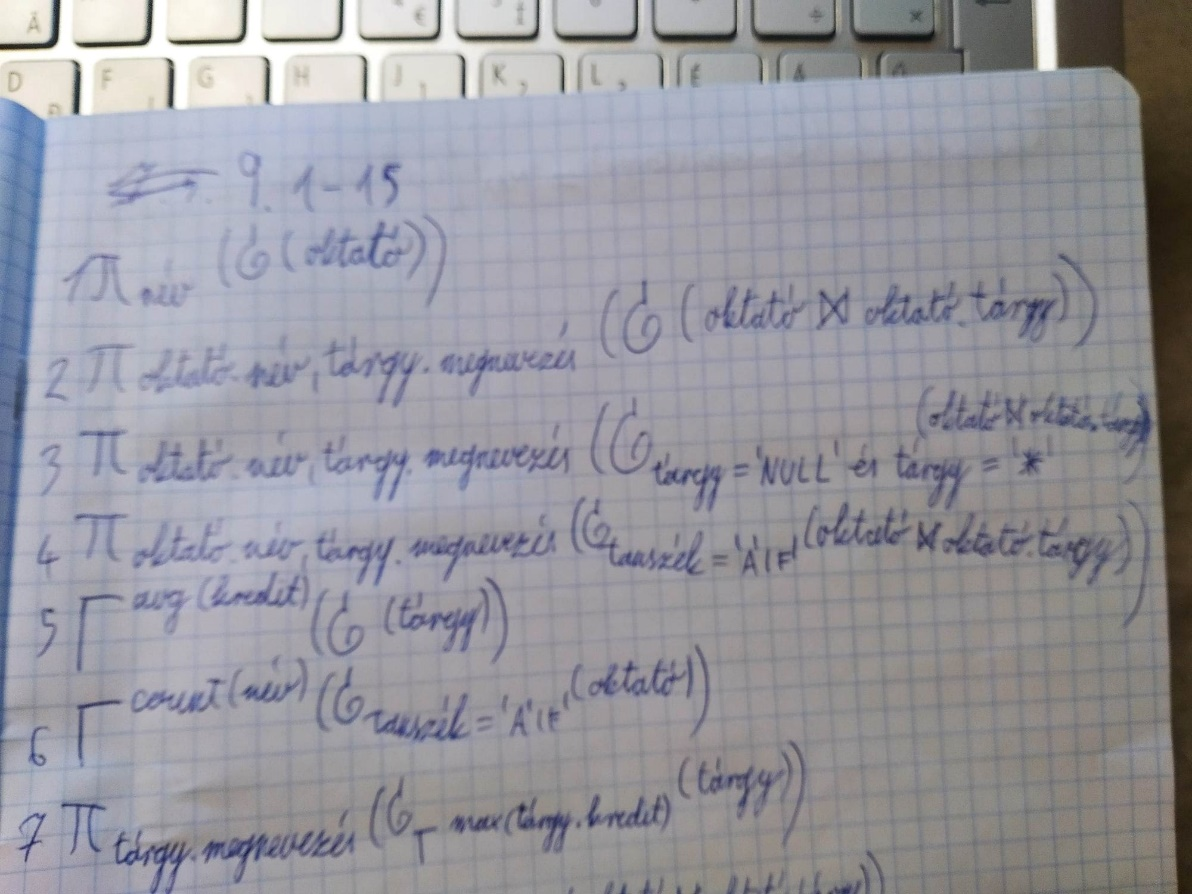 9. 1-15
1 π név (σ (oktató))
2 π oktató.név, tárgy.megnevezés (σ (oktató ⋈ oktató.tárgy))
3 π oktató.név, tárgy.megnevezés (σ tárgy = 'NULL' és tárgy = '*' (oktató ⋈ oktató.tárgy))
4 π oktató.név, tárgy.megnevezés (σ tanszék = 'ÁIF' (oktató ⋈ oktató.tárgy))
5 Γ avg(kredit) (σ (tárgy))
6 Γ count(név) (σ tanszék = 'ÁIF' (oktató))
7 π tárgy.megnevezés (σ Γ max(tárgy.kredit) (tárgy))